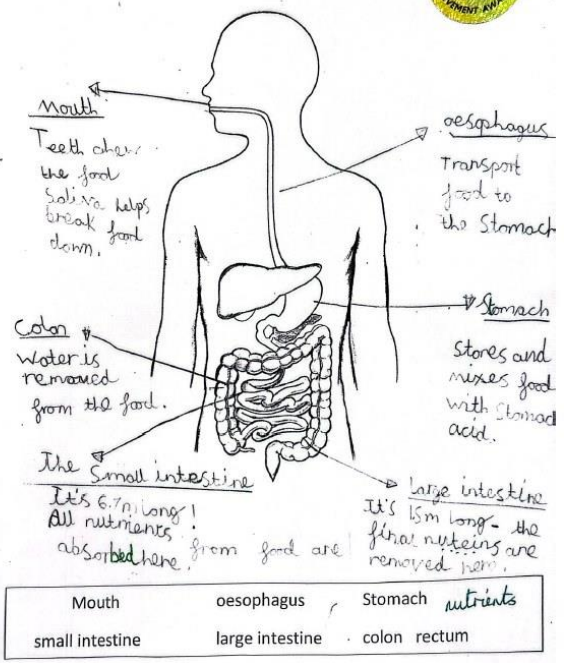 VEMENT AWA
Mouth
Teeth chew
the food
Saliva helps
break food
down.
oesophagus
Transport
food to
the Stomach
Stomach
Stores and
mixes food
with Stomac
acid.
Colon
Water is
removed
from the food.
The Small intestine
It's 6.7m long!
All nutrients
from food are
absorbed here.
large intestine
It's 1.5m long - the
final nuteins are
removed
Mouth oesophagus Stomach nutrients
small intestine large intestine colon rectum